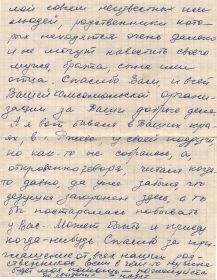 мой совсем неизвестных нам
людей, родственники кото-
рых находятся очень далеко
и не могут навестить своего
мужа, брата, сына или
отца. Спасибо Вам и всей
Вашей комсомольской органи-
зации за Ваши добрые дела.
А я вот бывала в Ваших кра-
ях, в Ржеве, у своей подруги,
но как-то не собралась, а,
откровенно говоря, читала когда-
то давно, да уже забыла что
дедушка захоронен здесь, а то
бы постаралась побывать
у Вас. Может быть и приеду
когда-нибудь. Спасибо за при-
глашение от всех наших род-
ственников. Если в чем-то нужна
будет моя помощь,